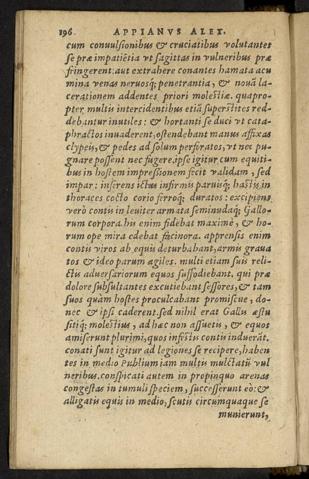 196. APPIANVS ALEX.
cum conuulsionibus & cruciatibus volutantes
se præ impatiētia vt sagittas in vulneribus præ
fringerent: aut extrahere conantes hamata acu
mina venas neruosq; penetrantia, & nouā la-
cerationem addentes priori molestiæ. quapro-
pter multis intercidentibus etiā superstites red-
debantur inutiles: & hortanti se duci vt cata-
phractos inuaderent, ostendebant manus affixas
clypeis, & pedes ad solum perforatos, vt nec pu-
gnare possent nec fugere. ipse igitur cum equiti-
bus in hostem impressionem fecit validam, sed
impar: inferens ictus infirmis paruisq; hastis, in
thoraces cocto corio ferroq; duratos: excipiens
verò contis in leuiter armata seminudaq; Gallo-
rum corpora. his enim fidebat maximè, & ho-
rum ope mira edebat facinora. apprensis enim
contis viros ab equis deturbabant, armis graua
tos & ideo parum agiles. multi etiam suis reli-
ctis aduersariorum equos suffodiebant. qui præ
dolore subsultantes excutiebant sessores, & tam
suos quàm hostes proculcabant promiscue, do-
nec & ipsi caderent. sed nihil erat Gallis æstu
sitiq; molestius, ad hæc non assuetis, & equos
amiserunt plurimi, quos infestis contis induerāt.
conati sunt igitur ad legiones se recipere, haben
tes in medio Publium iam multis mulctatū vul
neribus. conspicati autem in propinquo arenas
congestas in tumuli speciem, successerunt eò: &
alligatis equis in medio, scutis circumquaque se
munierunt,